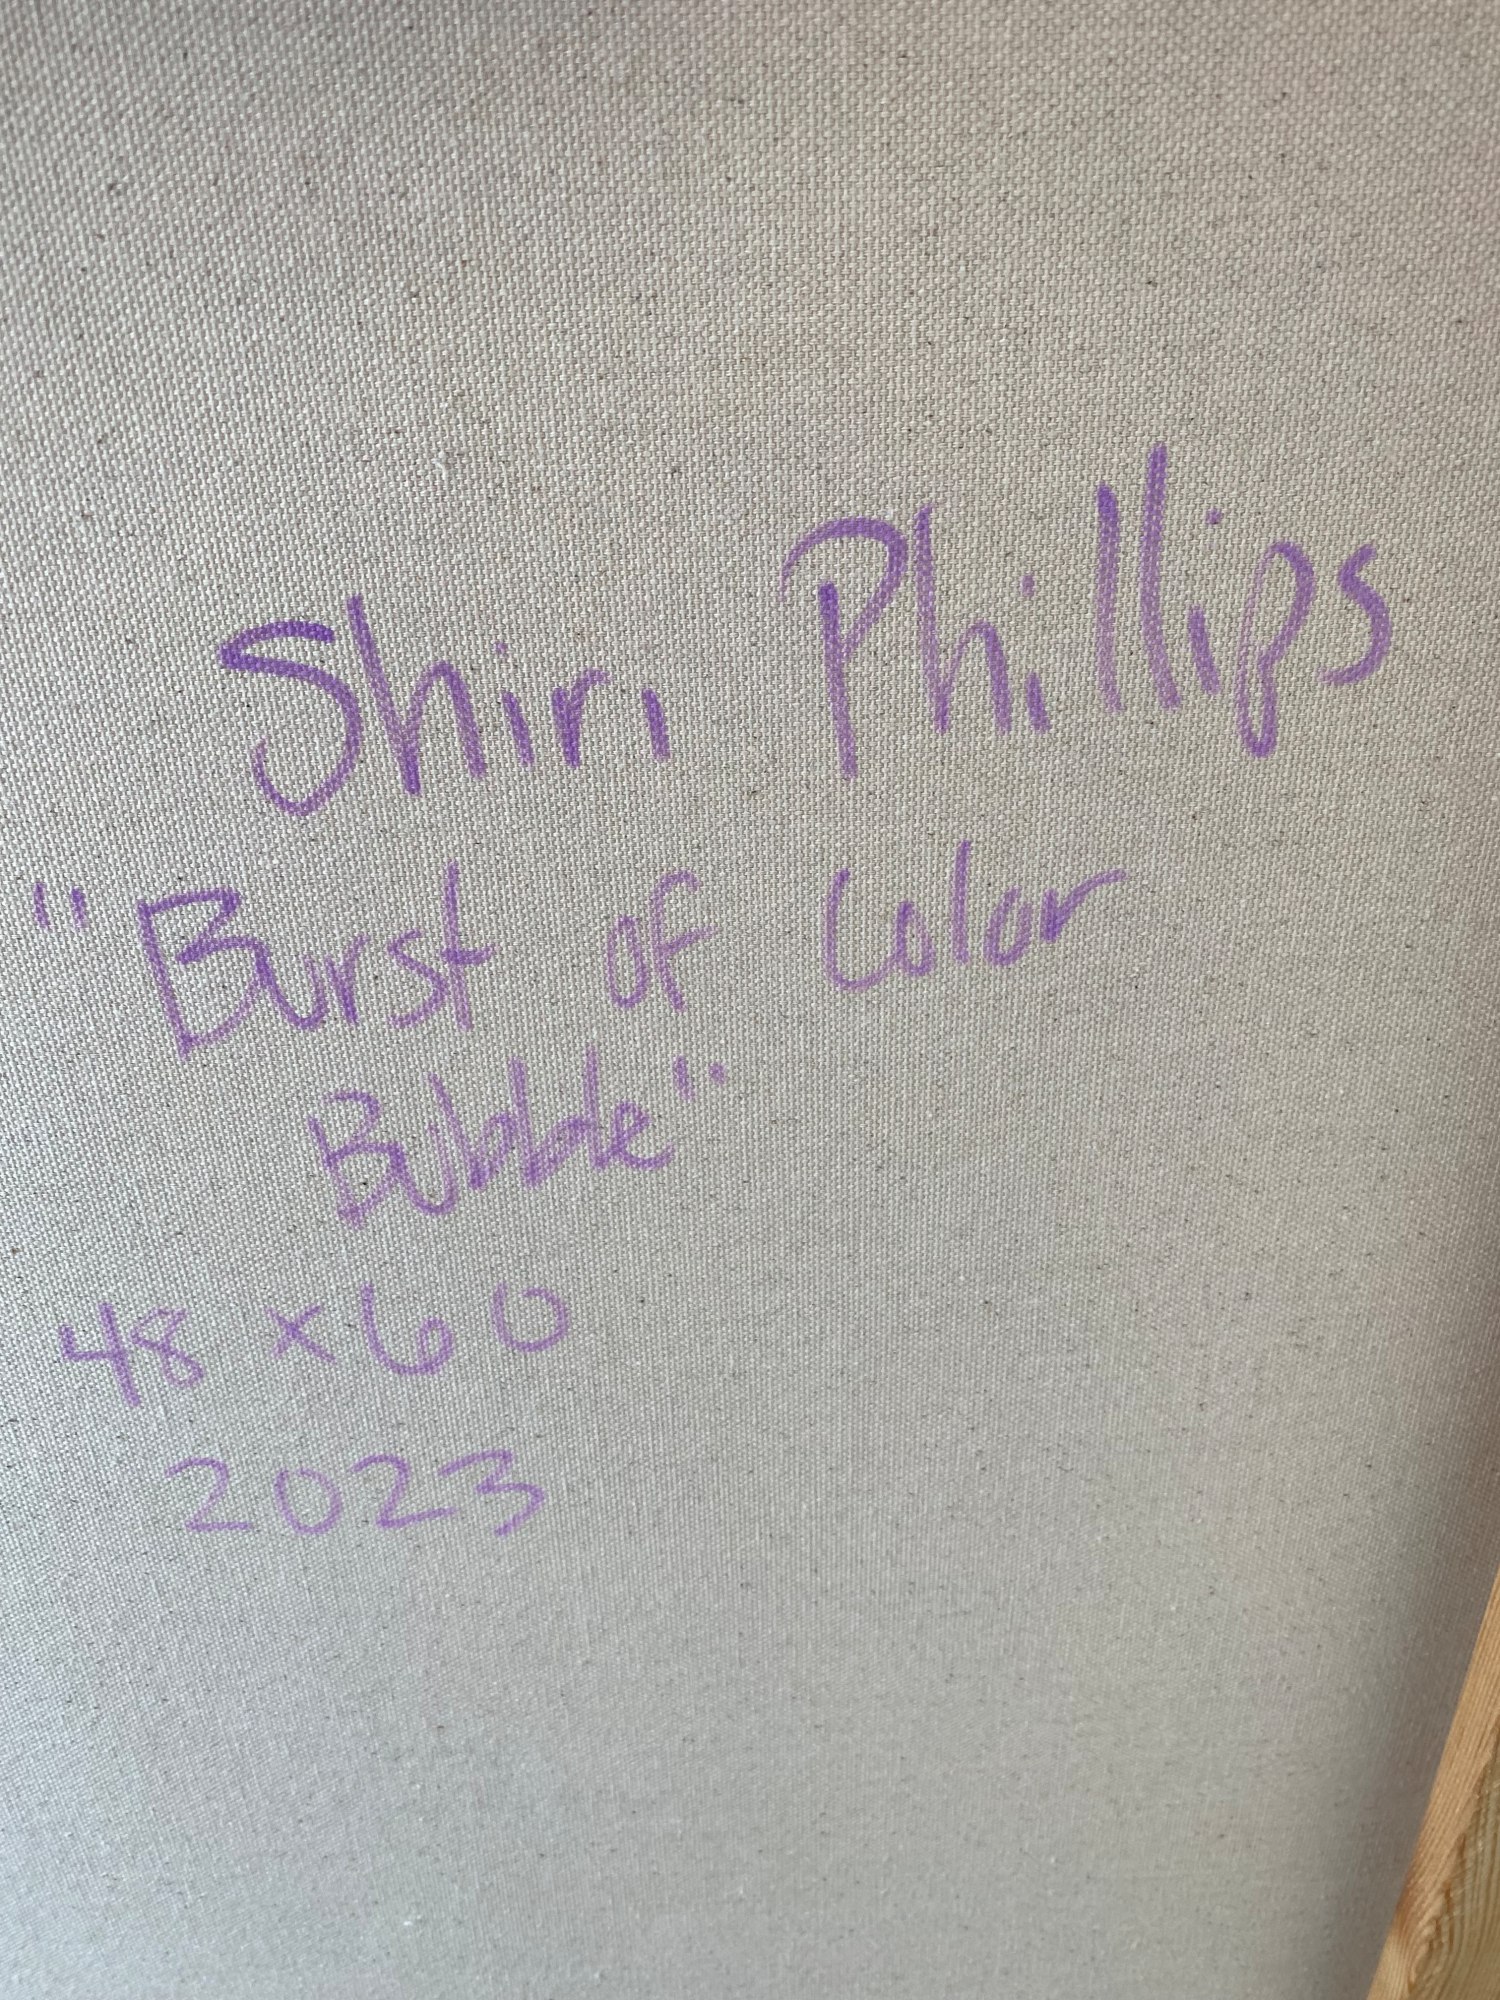 Shiri Phillips
"Burst of Color
Bubble"
48 x 60
2023